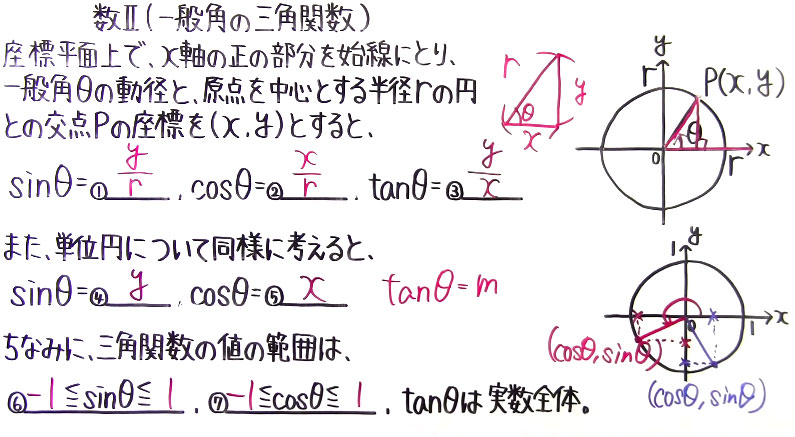 数Ⅱ(一般角の三角関数)
座標平面上で、x軸の正の部分を始線にとり、
一般角θの動径と、原点を中心とする半径rの円
との交点Pの座標を(x,y)とすると、
sinθ=① y/r , cosθ=② x/r , tanθ=③ y/x
r θ x y
y r P(x,y) θ 0 r x
また、単位円について同様に考えると、
sinθ=④ y , cosθ=⑤ x tanθ=m
1 y 0 1 x
(cosθ,sinθ)
(cosθ,sinθ)
ちなみに、三角関数の値の範囲は、
⑥ -1≦sinθ≦1 , ⑦ -1≦cosθ≦1 , tanθは実数全体。